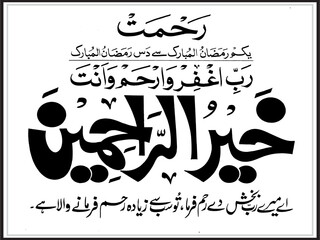 رحمت
یکم رمضان المبارک سے دس رمضان المبارک
رَبِّ اغْفِرْ وَارْحَمْ وَاَنْتَ
خَيْرُ الرَّاحِمِيْنَ
اے میرے رب بخش دے رحم فرما، تو سب سے زیادہ رحم فرمانے والا ہے۔